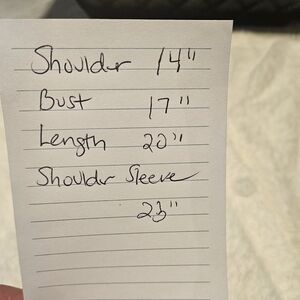 Shoulder 14"
Bust 17"
Length 20"
Shouldr Sleeve
23"